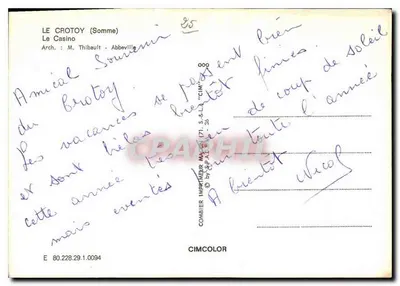 LE CROTOY (Somme)
Le Casino
Arch. : M. Thibault - Abbeville
20
Amical Souvenir
du Crotoy.
Les vacances se passent bien
et sont hélas bientôt finies.
cette année pas un de coup de soleil
mais éventés pour toute l'année
A bientôt Nicole
CPARAMA
COMBIER IMPRIMEUR MACON (71. S.-&-L.) "CIM"
CIMCOLOR
E 80.228.29.1.0094